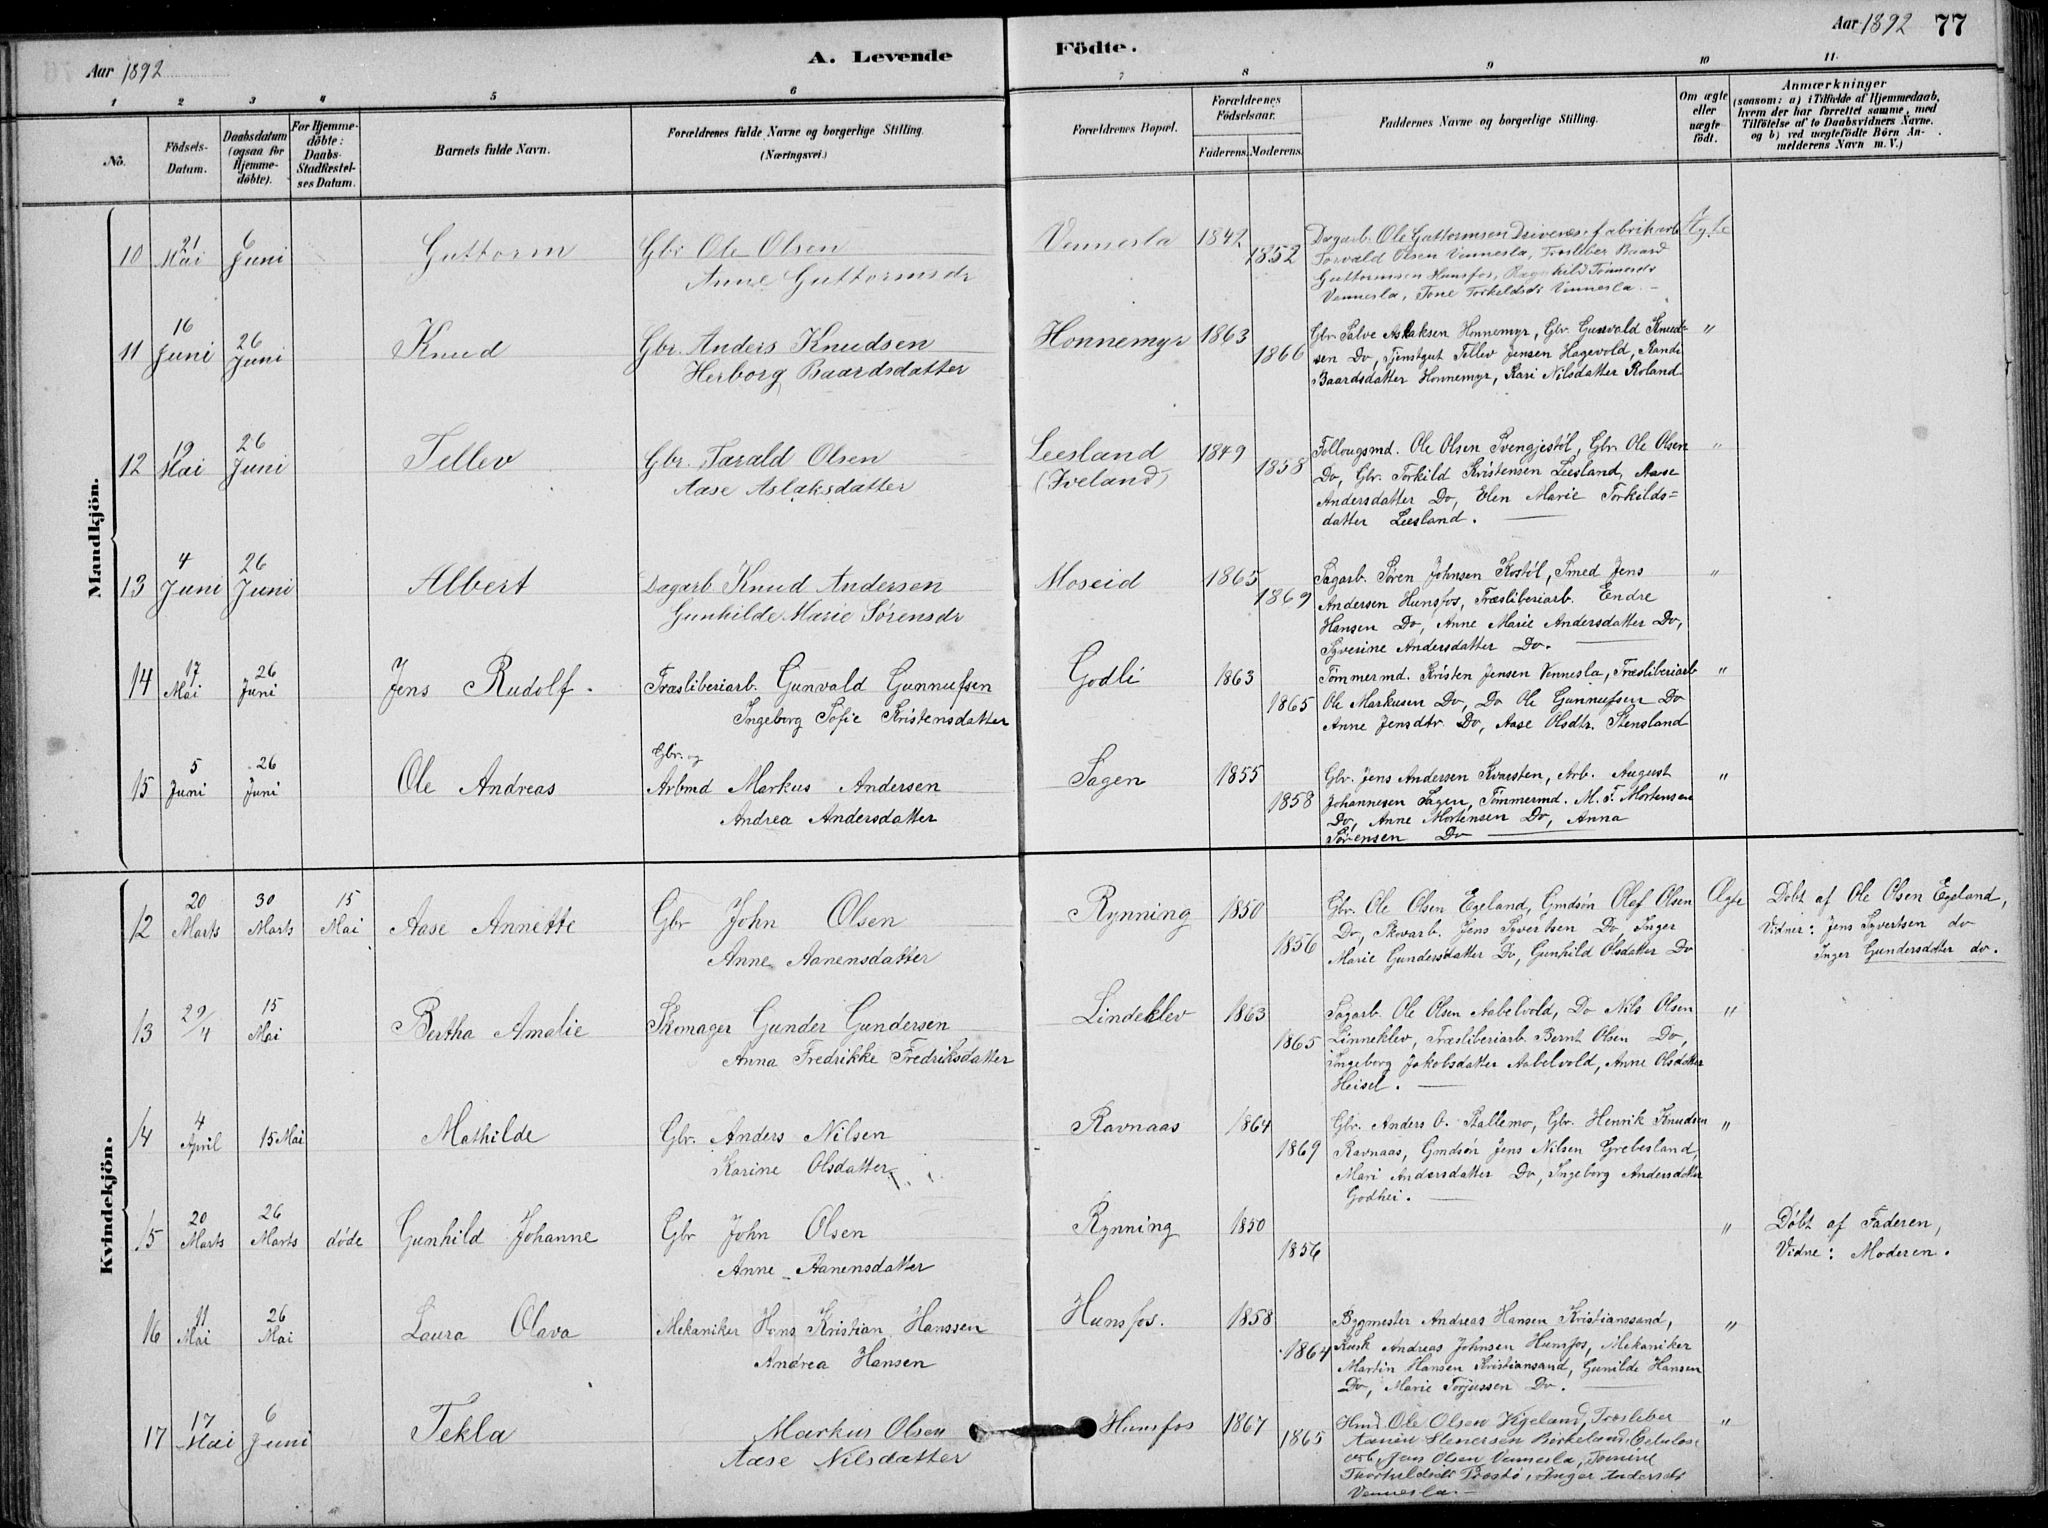 Aar 1892
A. Levende Födte.
Aar 1892 77
1 2 3 4 5 6 7 8 9 10 11.
No.
Födsels-Datum.
Daabsdatum (ogsaa for Hjemme-döbte).
For Hjemme-döbte: Daabs-Stadfæstel-ses Datum.
Barnets fulde Navn.
Forældrenes fulde Navne og borgerlige Stilling.
(Næringsvei.)
Forældrenes Bopæl.
Forældrenes Födselsaar.
Faderens. Moderens.
Faddernes Navne og borgerlige Stilling.
Om ægte eller uægte födt.
Anmærkninger
(saasom: a) i Tilfælde af Hjemmedaab,
hvem der har forrettet samme, med
Tilföielse af to Daabsvidners Navne.
og b) ved uægtefödte Börn An-
melderens Navn m. V.)
Mandkjön.
10 21 Mai 6 Juni Guttorm Gbr Ole Olsen Vennesla 1842 Ægte
Anne Guttormsdr 1852
Dagarb. Ole Guttormsen Drivenes, fabrikarb
Torvald Olsen Vennesla, Træsliber Baard
Guttormsen Hunsfos, Ragnhild Tønnesdr
Vennesla, Tone Torkeldsdr Vennesla.
11 16 Juni 26 Juni Knud Gbr. Anders Knudsen Honnemyr 1863 "
Herborg Baardsdatter 1866
Gbr. Salve Aslaksen Honnemyr, Gbr. Gunvald Knud-
sen Do, Tjenstgut Tellev Jensen Hagevold, Randi
Baardsdatter Honnemyr, Kari Nilsdatter Roland
12 19 Mai 26 Juni Tellev Gbr. Tarald Olsen Leesland 1849 "
Aase Aslaksdatter (Iveland) 1858
Follougsmd. Ole Olsen Svengjestøl, Gbr. Ole Olsen
Do, Gbr. Torkild Kristensen Leesland, Aase
Andersdatter Do, Elen Marie Torkilds=
datter Leesland.
13 4 Juni 26 Juni Albert Dagarb Knud Andersen Moseid 1865 "
Gunhilde Marie Sørensdr 1869
Sagarb. Søren Johnsen Kostøl, Smed Jens
Andersen Hunsfos, Træsliberiarb. Endre
Hansen Do, Anne Marie Andersdatter Do,
Syverine Andersdatter Do.
14 17 Mai 26 Juni Jens Rudolf. Træsliberiarb. Gunvald Gunnufsen Godli 1863 "
Ingeborg Sofie Kristensdatter 1865
Tømmermd. Kristen Jensen Vennesla, Træsliberiarb
Ole Markusen Do, Do Ole Gunnufsen Do
Anne Jensdtr. Do, Aase Olsdtr. Stensland
15 5 Juni 26 Juni Ole Andreas Gbr. og
Arbmd Markus Andersen Sagen 1855 "
Andrea Andersdatter 1858
Gbr. Jens Andersen Kvarsten, Arb. August
Johannesen Sagen, Tømmermd. M. T. Mortensen
Do, Anne Mortensen Do, Anna
Sørensen Do
Kvindekjön.
12 20 Marts 30 Marts 15 Mai Aase Annette Gbr John Olsen Rynning 1850 Ægte
Anne Aanensdatter 1856
Gbr. Ole Olsen Egeland, Gmdsøn Olef Olsen
Do, Skovarb. Jens Syvertsen Do, Inger
Marie Gundersdatter Do, Gunhild Olsdatter Do
Døbt af Ole Olsen Egeland,
Vidner: Jens Syvertsen do
Inger Gundersdatter do.
13 29/4 15 Mai Bertha Amalie Skomager Gunder Gundersen Lindeklev 1863 "
Anna Fredrikke Fredriksdatter 1865
Sagarb. Ole Olsen Aabelvold, Do Nils Olsen
Linneklev, Træsliberiarb. Bernt Olsen Do,
Ingeborg Jakobsdatter Aabelvold, Anne Olsdatter
Heisel.
14 4 April 15 Mai Mathilde Gbr. Anders Nilsen Ravnaas 1864 "
Karine Olsdatter 1869
Gbr. Anders O. Stallemo, Gbr. Henrik Knudsen
Ravnaas, Gmdsøn Jens Nilsen Grebesland,
Mari Andersdatter Do, Ingeborg Andersdatter
Godhei.
15 20 Marts 26 Marts døde Gunhild Johanne Gbr John Olsen Rynning 1850 "
Anne Aanensdatter 1856
Døbt af Faderen,
Vidne: Moderen.
16 11 Mai 26 Mai Laura Olava Mekaniker Hans Kristian Hanssen Hunsfos. 1858 "
Andrea Hansen 1864
Bygmester Andreas Hansen Kristianssand,
Kusk Andreas Johnsen Hunsfos, Mekaniker
Martin Hansen Kristiansand, Gunilde Hansen
Do, Marie Torjussen Do.
17 17 Mai 6 Juni Tekla Markus Olsen Hunsfos 1867 "
Aase Nilsdatter 1865
Ole Olsen Træsliber
Birkeland, Celulose
arb, Jens Olsen Vennesla, Tomine
Inger Andersdr
Vennesla.